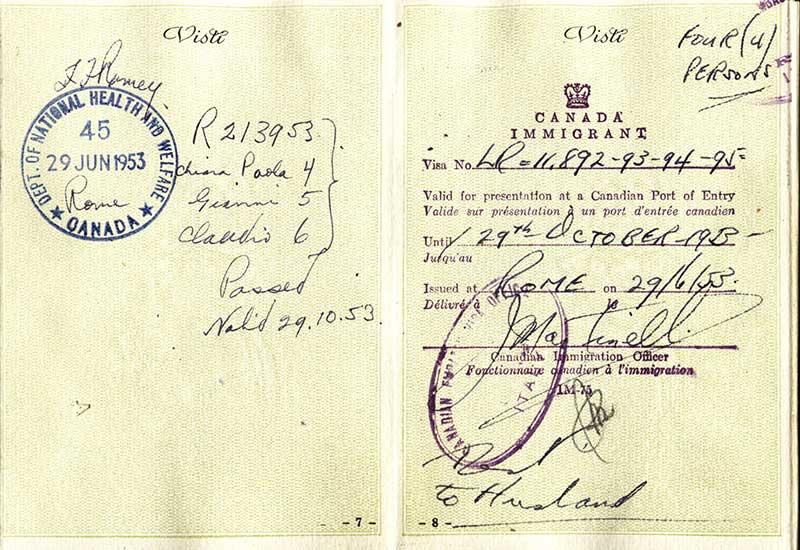 Visti
DEPT. OF NATIONAL HEALTH AND WELFARE
45
29 JUN 1953
Rome
CANADA
R 213953
Chiara Paola 4
Gianni 5
Claudio 6
Passed
Valid 29.10.53
- 7 -
Visti
FOUR (4)
PERSONS
CANADA
IMMIGRANT
Visa No. LR = 11,892-93-94-95=
Valid for presentation at a Canadian Port of Entry
Valide sur présentation à un port d'entrée canadien
Until 29th OCTOBER-1953-
Jusqu'au
Issued at ROME on 29/6/53.
Délivré à le
Canadian Immigration Officer
Fonctionnaire canadien à l'immigration
IM-75
CANADIAN VISA OFFICE
ITALY
to Husband
- 8 -